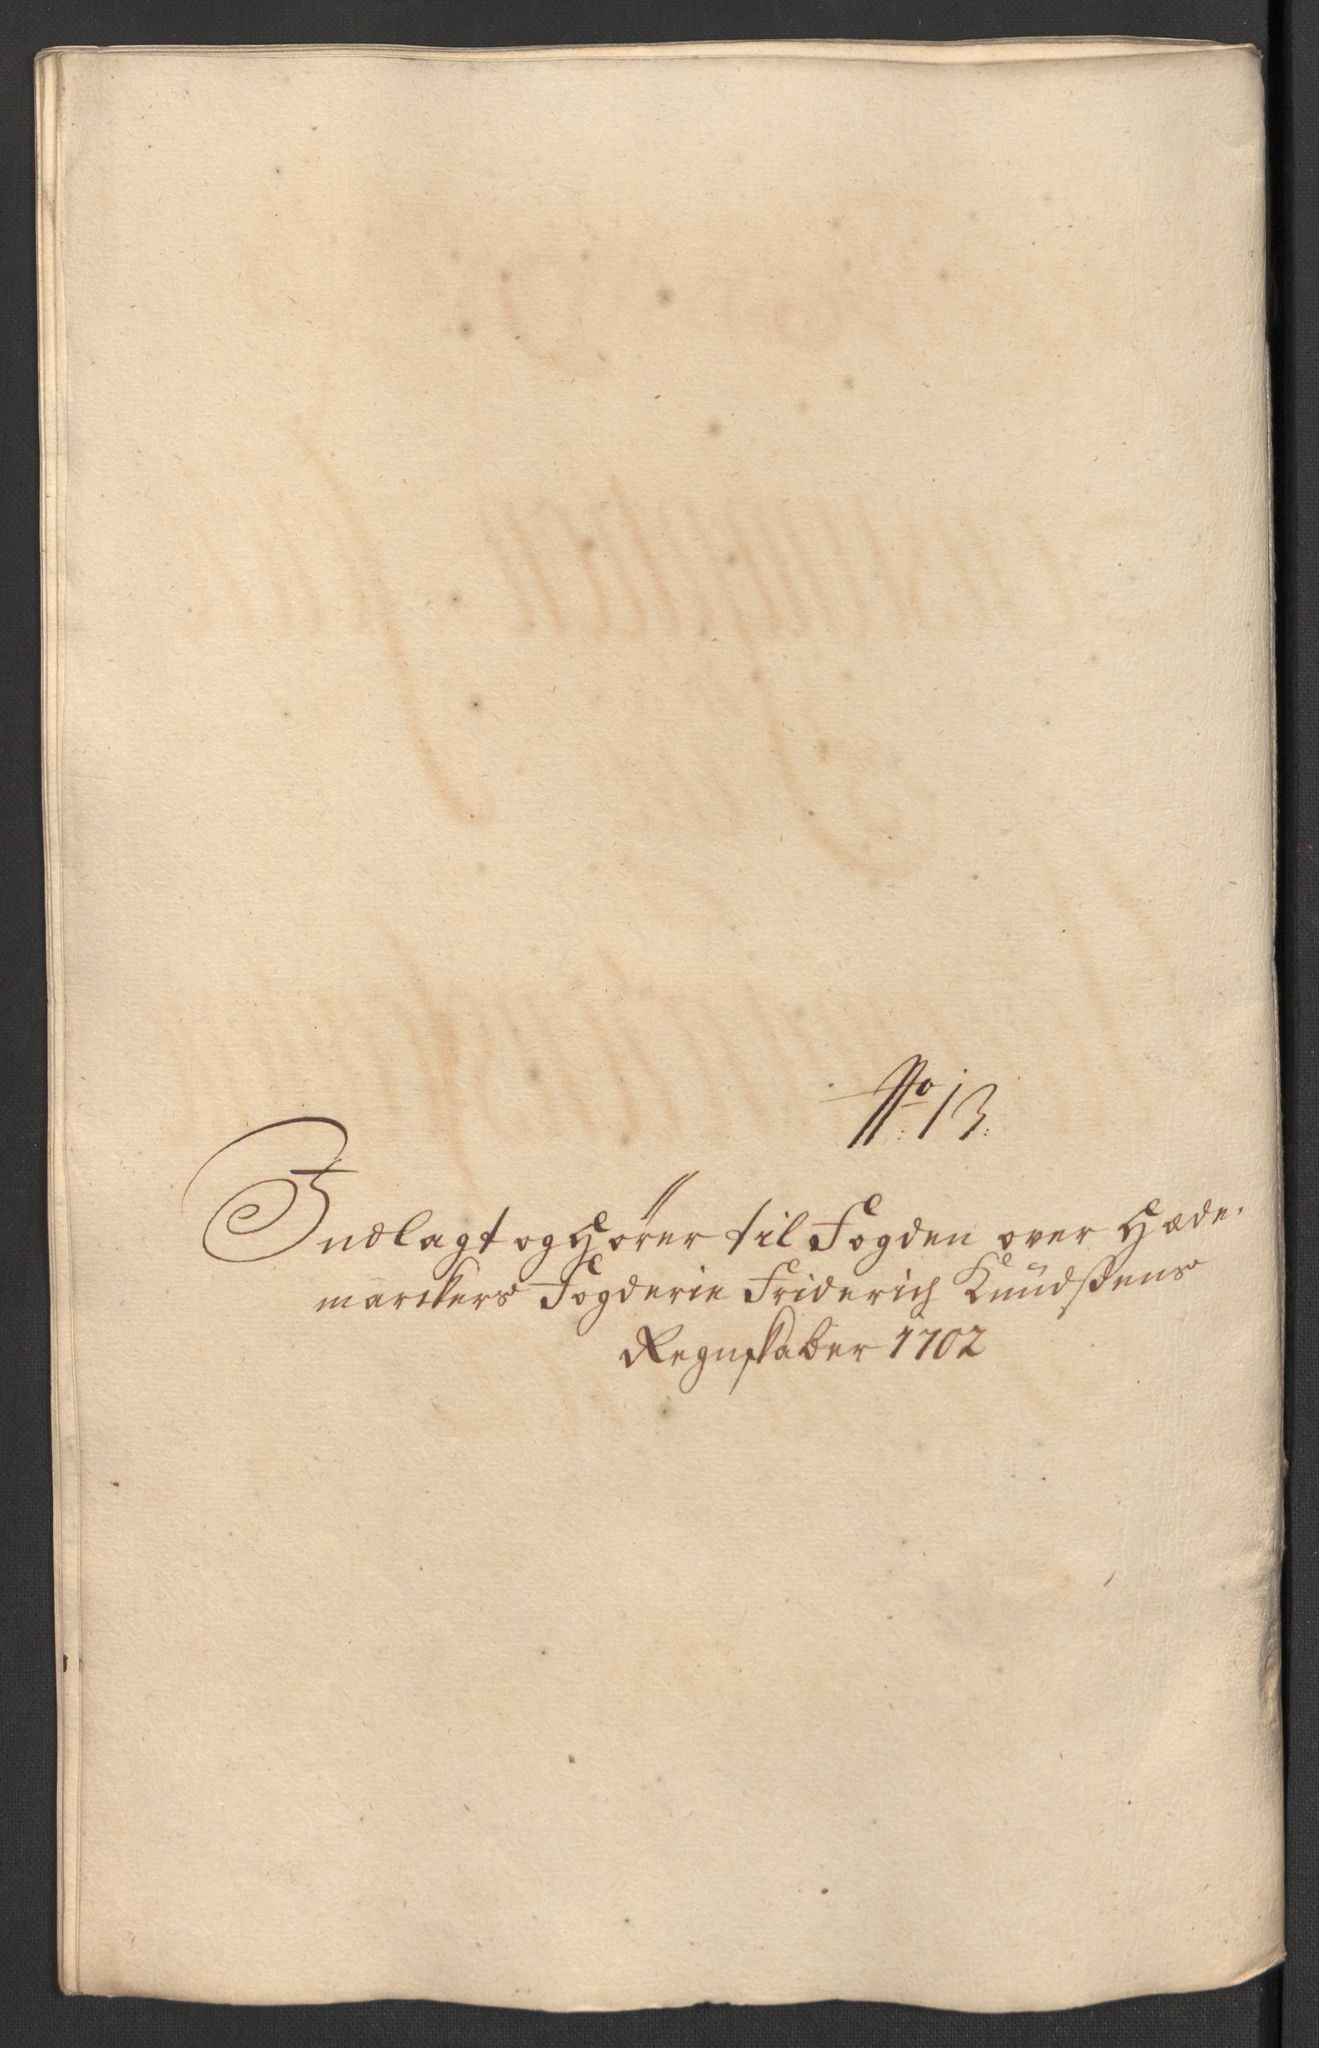 No 13
Indlagt og Hører til Fogden over Hæde-
marckers Fogderie Friderich Knudsens
Regnskaber 1702